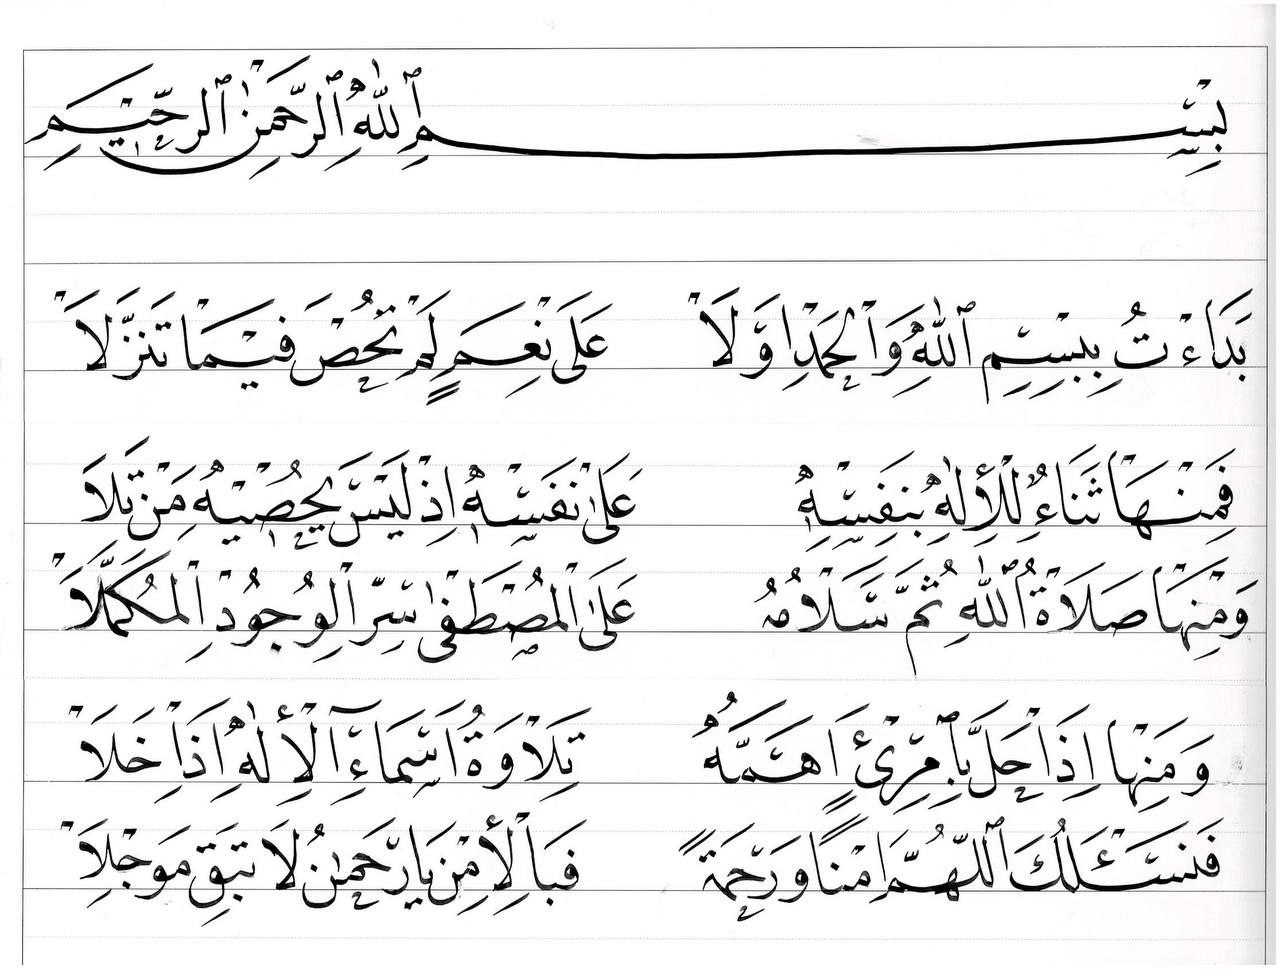 بِسْمِ ٱللّٰهِ ٱلرَّحْمٰنِ ٱلرَّحِيْمِ
بَدَاءْتُ بِبِسْمِ اللّٰهِ وَالْحَمْدِ اَوَّلَا عَلَى نِعَمٍ لَمْ تُحْصَ فِيْمَا تَنَزَّلَا
فَمِنْهَا ثَنَاءٌ لِلْأِلٰهِ بِنَفْسِهِ عَلٰى نَفْسِهٖ اِذْ لَيْسَ يُحْصِيْهُ مَنْ تَلَا
وَمِنْهَا صَلَاةُ اللّٰهِ ثُمَّ سَلَامُهُ عَلَى الْمُصْطَفٰى سِرِّ الْوُجُوْدِ الْمُكَمَّلَا
وَمِنْهَا اِذَا حَلَّ بِاِمْرِئٍ اَهَمَّهُ تِلَاوَةُ اَسْمَاءِ الْأِلٰهِ اِذَا خَلَا
فَنَسْئَلُكَ اللّٰهُمَّ اَمْنًا وَرَحْمَةً فَبِالْأَمْنِ يَا رَحْمٰنُ لَا تُبْقِ مَوْجِلَا